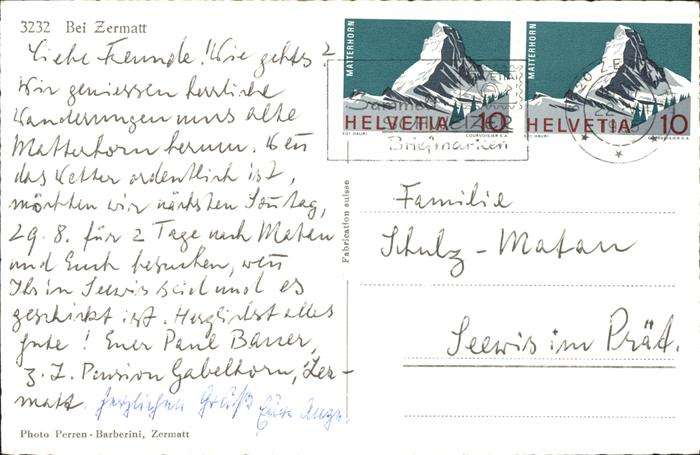 3232 Bei Zermatt
Liebe Freunde! Wie gehts?
Wir geniessen herrliche
Wanderungen ums alte
Matterhorn herum. Wenn
das Wetter ordentlich ist,
möchten wir nächsten Sonntag,
29. 8. für 2 Tage nach Matan
und Euch besuchen, wenn
Ihr in Seewis seid und es
geschickt ist. Herzlichst alles
gute! Euer Paul Banner,
z. Z. Pension Gabelhorn, Zer-
matt. herzlichen Gruß Eure
Photo Perren - Barberini, Zermatt
Fabrication suisse
MATTERHORN
HELVETIA 10
COURVOISIER S.A.
MATTERHORN
HELVETIA 10
COURVOISIER S.A.
Sammelt
Briefmarken
Familie
Schulz - Matan
Seewis im Prät.